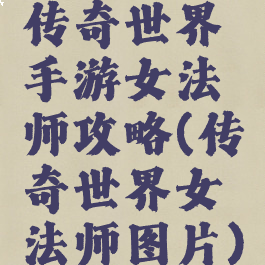 传奇世界
手游女法
师攻略(传
奇世界女
法师图片)